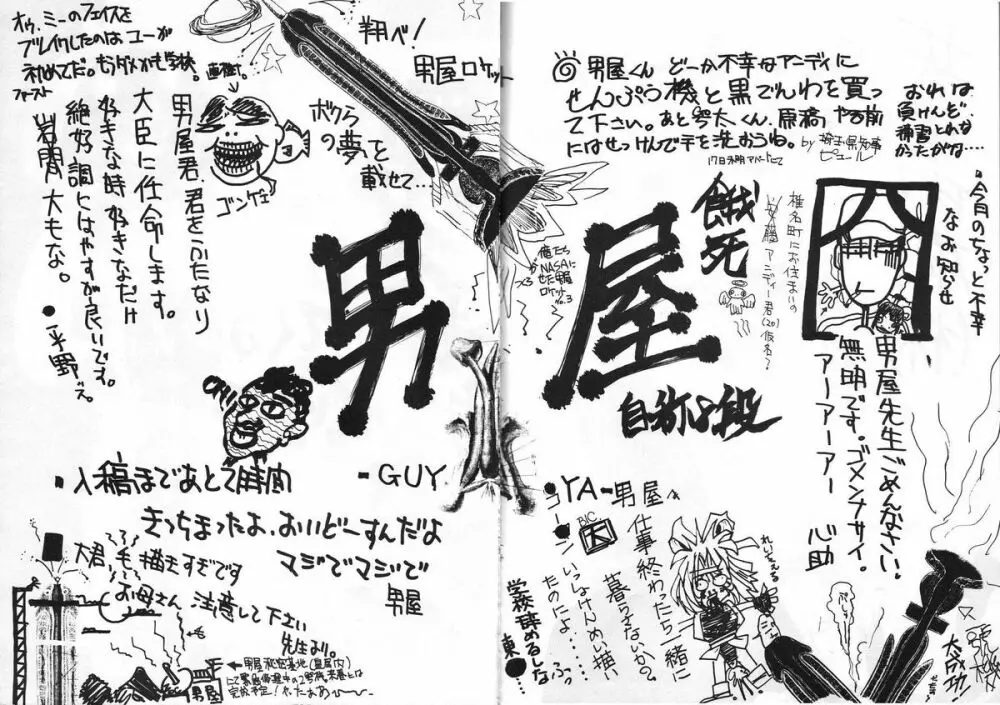 オゥ、ミーのフェイスを
ブレイクしたのはユーが
初めてだ。もうダメかも学校。
ファースト
直樹。
男屋君、君をふたなり
大臣に任命します。
好きな時好きなだけ
絶好調にはやすが良いです。
岩間大もな。
●平野
ゴンゲェ
翔べ!
男屋ロケット
ボクら
の夢を
載せて…
俺たち
NASAに
男屋
ロケット
No.3
男屋
◎男屋くん どーか不幸なアンディに
せんぷう機と黒でんわを買っ
て下さい。あと弓太くん、原稿やる前
にはせっけんで手を洗おうね。
by 埼玉県知事
ピエール
おれは
負けんど、
補習とれな
かったがな…
餓死
椎名町にお住まいの
安藤アンディー君(20)
仮名?
・今月のちょっと不幸
なお知らせ
男屋先生ごめんなさい。
無明です。ゴメンナサイ。
アーアーアー
心助
自称2段
・GUY
・YA-男屋
・入稿まであと2時間
きっちまったよ、おいどーすんだよ
マジでマジで
男屋
大君、毛描きすぎです
お母さん、注意して下さい
先生より。
←男屋秘密基地(皇居内)
男屋
コーーン
BIG
因
いっしょけんめい描い
たのによ……
学校辞めるしなふっ
東●
仕事終わったら一緒に
暮らさないか。
れいざえる
頭機
大成功!